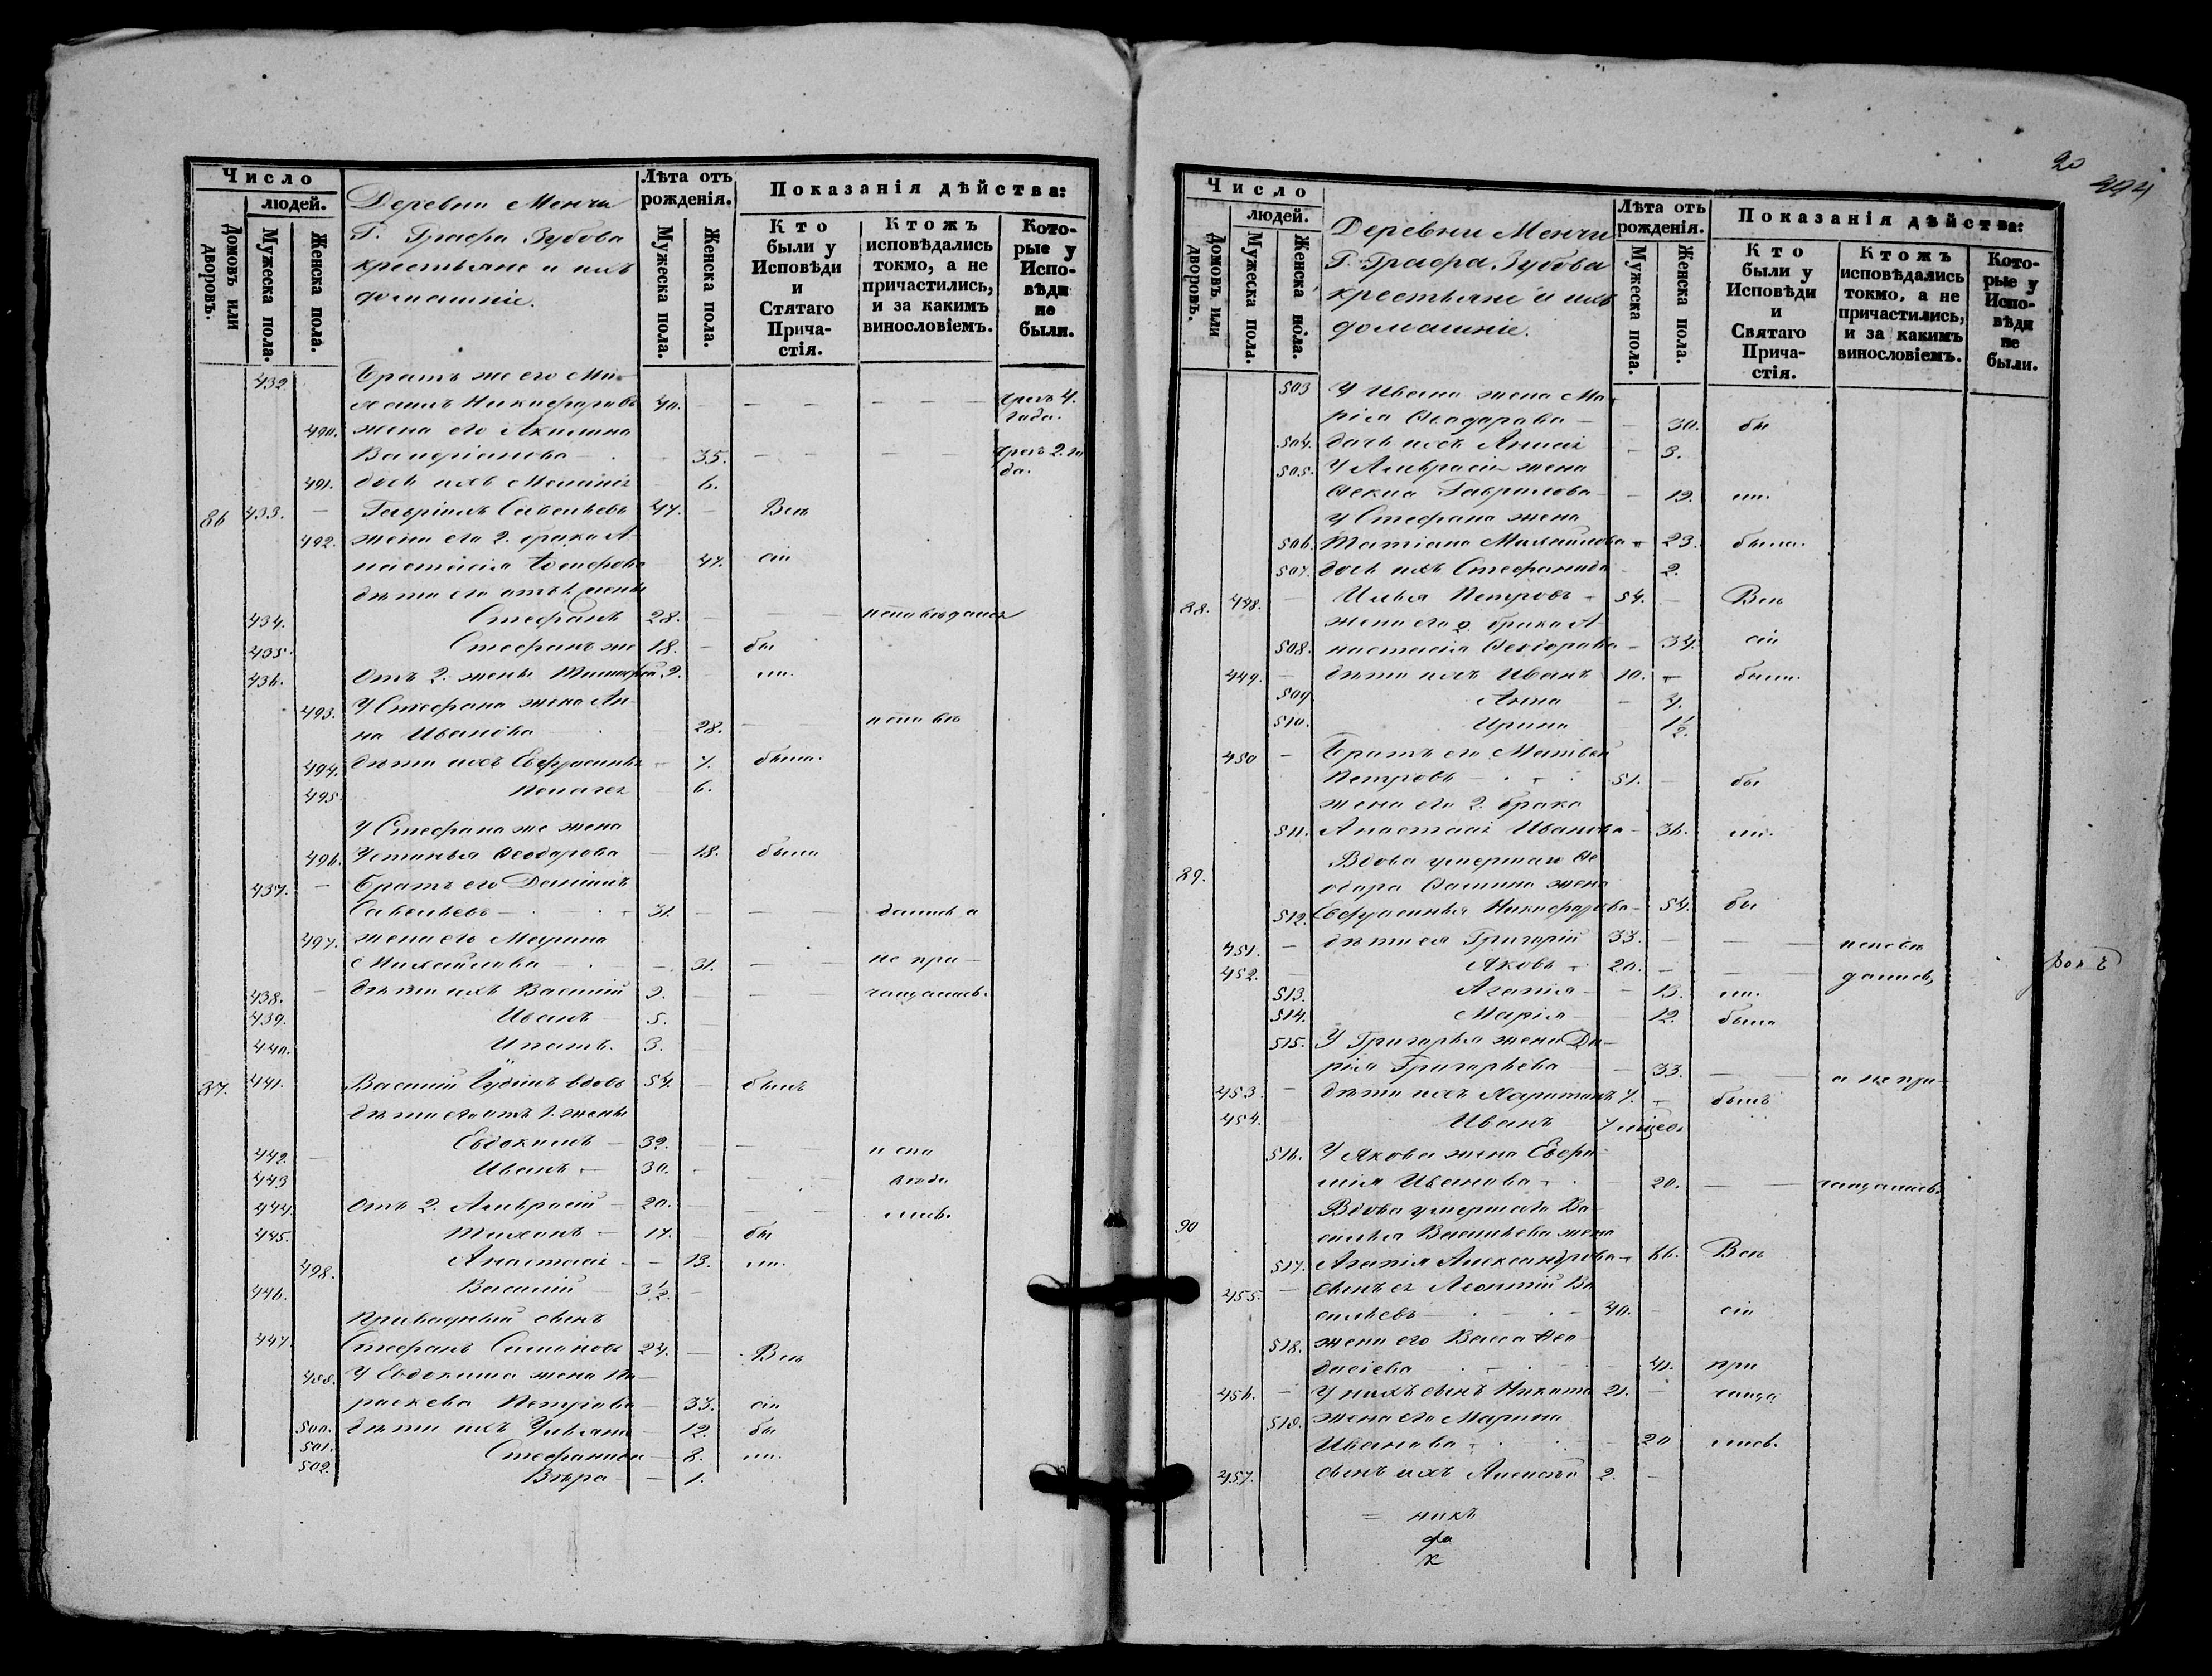 Число
людей.
Домовъ или дворовъ.
Мужеска пола.
Женска пола.
Деревни Менчи
Г. Графа Зубова
крестьяне и ихъ
домашніе.
Лѣта отъ рожденія.
Мужеска пола.
Женска пола.
Показанія дѣйства:
Кто были у Исповѣди и Стятаго Прича-стія.
Ктожъ исповѣдались токмо, а не причастились, и за какимъ винословіемъ.
Кото-рые у Испо-вѣди не были.
432. Братъ же его Ми-
хаилъ Никифоровъ 40. — — — — — чрезъ 4. года.
490. жена его Акилина
35. — — — — чрезъ 2. го да.
491. дочь ихъ 6.
86 433. — Гавріилъ Савельевъ 47. — Всѣ
492. жена его 2. брака А
настасія 47. сіи
дѣти его отъ 1. жены
434. Стефанъ 28. — — исповѣдался
435. Стефанъ же 18. — бы
436. отъ 2. жены Тимофей 9. ли.
493. У Стефана жена Ан-
на Иванова 28. — — исповѣ
494. дѣти ихъ Евфросинья 7. была.
495. Пелагея 6.
У Стефана же жена
496. Устинья Ѳеодорова — 18. была
437. — Братъ его Даніилъ
Савельевъ 31. — — дались а
497. жена его Марина
Михайлова — 31. — не при-
438. — дѣти ихъ Василій 9. — — чащались.
439. Иванъ 5. —
440. Ипатъ. 3. —
87. 441. Василій вдовъ 54. — былъ
дѣти его отъ 1. жены
442. — Евдокимъ — 32. — — испо
443 Иванъ — 30. — — вѣда
444. отъ 2. Амвросій — 20. — — лись.
445. Тихонъ — 17. — бы
498. Анастасія — — 13. ли.
446. Василій 3½. —
приводный сынъ
447. Стефанъ Симоновъ 24. — Всѣ
У Евдокима жена Па-
раскева Петрова 33. сіи
500. дѣти ихъ Ульяна — 12. бы
501. Стефанида — 8. ли.
502. Вѣра — — 1.
20
494
Число
людей.
Домовъ или дворовъ.
Мужеска пола.
Женска пола.
Деревни Менчи
Г. Графа Зубова
крестьяне и ихъ
домашніе.
Лѣта отъ рожденія.
Мужеска пола.
Женска пола.
Показанія дѣйства:
Кто были у Исповѣди и Святаго Прича-стія.
Ктожъ исповѣдались токмо, а не причастились, и за какимъ винословіемъ.
Кото-рые у Испо-вѣди не были.
503 У Ивана жена Ма-
рія Ѳеодорова — — 30. бы
504. дочь ихъ — 3.
505. У Амвросія жена
Ѳекла Гаврилова — — 19. ли.
У Стефана жена
506. Татіана Михайлова — 23. была.
507. дочь ихъ Стефанида 2.
88. 448. — Илья Петровъ — 54. — Всѣ
жена его 2. брака А-
508. настасія Ѳеодорова — 34. сіи
449. — дѣти ихъ Иванъ 10. — были.
509 Анна — 4.
510. Ирина 1½.
450 — Братъ его Матвѣй
Петровъ — 51. — бы
жена его 2. брака
511. Анастасія Иванова — 36. ли.
89. Вдова умершаго Ѳе
одора Ѳомина жена
512. Евфросинья Никифорова — 54. бы
451. — дѣти ея Григорій 33. — — — исповѣ
452. — Яковъ — 20. — — — дались,
513. Агапія — — 13. ли.
514. Марія — — 12. была
515. У Григорья жена Да-
рія Григорьева — — 33. — а не при-
453. — дѣти ихъ Харитонъ 7. — былъ
454. — Иванъ
516. У Якова жена Евфи-
мія Иванова — 20. — — чащались.
90 Вдова умершаго Ва-
силья Васильева жена
517. Агапія Александрова — 66. Всѣ
455. — сынъ ея Леонтій Ва
сильевъ — 40. — сіи
518. жена его Васса
41. при
456. — У нихъ сынъ Никита 21. — чаща
519. жена его Марина
Иванова — 20 лись.
457. сынъ ихъ Алексѣй 2. —